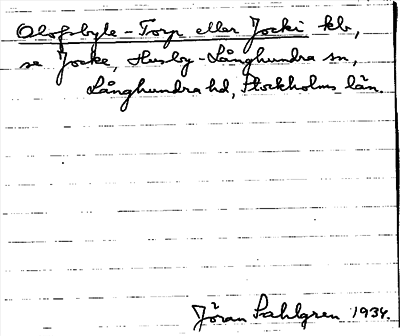 Olofsbyle-Torp eller Jocki kb,
se Jocke, Husby-Långhundra sn,
Långhundra hd, Stockholms län.
Jöran Sahlgren 1934.